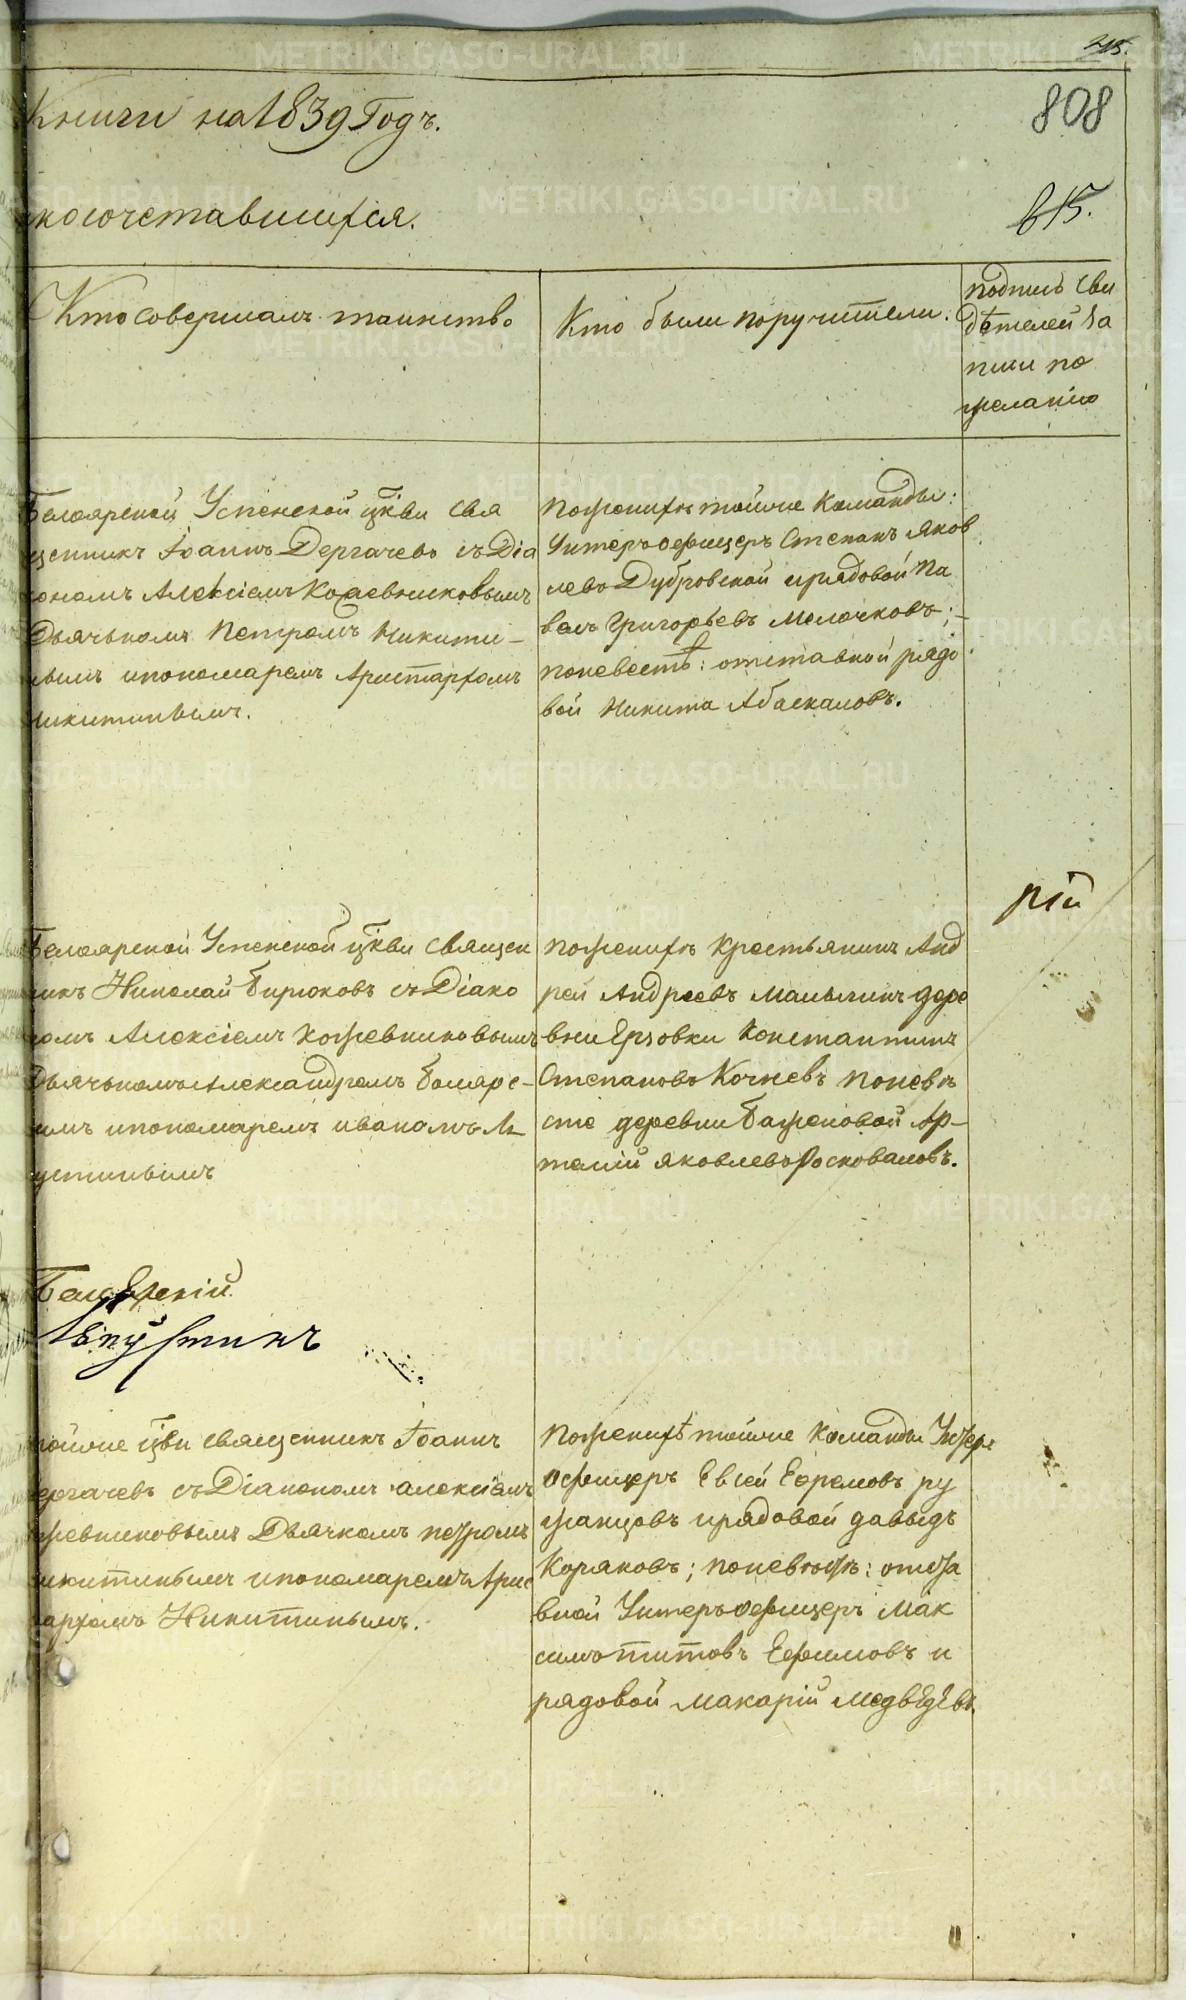 215.
Книги на 1839 Годъ.
808
косочетавшихся.
615.
Кто совершалъ таинство
Кто были поручители.
подпись сви
дѣтелей за
писи по
желанію
Белоярской Успенской цркви свя
щенникъ Іоаннъ Дергачевъ съ Діа
кономъ Алексіемъ Кожевниковымъ
Дьячькомъ Петромъ Никити-
нымъ ипономаремъ Аристархомъ
Никитинымъ.
поженихѣ тойже Команды:
Унтеръ офицеръ Степанъ Яков
левъ Дубровской ирядовой Па
велъ Григорьевъ Молочковъ;-
поневестѣ: отставной рядо
вой Никита Абаскаловъ.
рій
Белоярской Успенской цркви Священ
никъ Николай Бирюковъ съ Діако
номъ Алексіемъ Кожевниковымъ
Дьячькомъ Александромъ Бояре-
имъ ипономаремъ иваномъ Ле
устинымъ
поженихѣ крестьянинъ Анд
рей Андреевъ Малыгинъ дере
вни Ерзовки Констаитинъ
Степановъ Кочневъ поневѣ
сте деревни Баженовой Ар-
темій яковлевъ Росковаловъ.
Белоярскій
тойже цркви священникъ Іоаннъ
ергачевъ съ Діакономъ алексіемъ
жевниковымъ Дьячкомъ петромъ
икитинымъ ипономаремъ Арис
архомъ Никитинымъ.
поженихѣ тойже Команды Унтеръ
офицеръ Евсей Ефремовъ ру
жанцовъ ирядовой давыдъ
Коряковъ; поневестѣ: отста
вной Унтеръ офицеръ Мак
симъ титовъ Ефимовъ и
рядовой Макарій Медвѣдевъ.